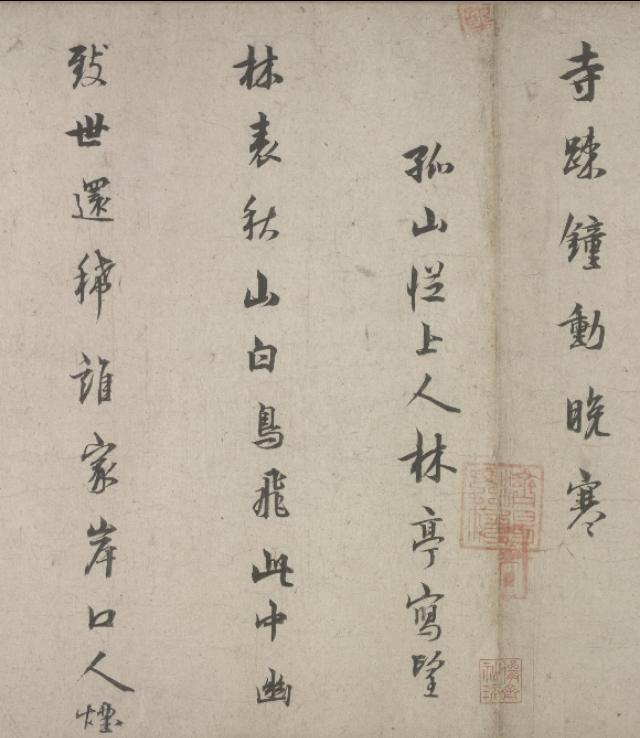 寺踈鐘動晚寒
孤山從上人林亭寫望
林表秋山白鳥飛此中幽
致世還稀誰家岸口人煙